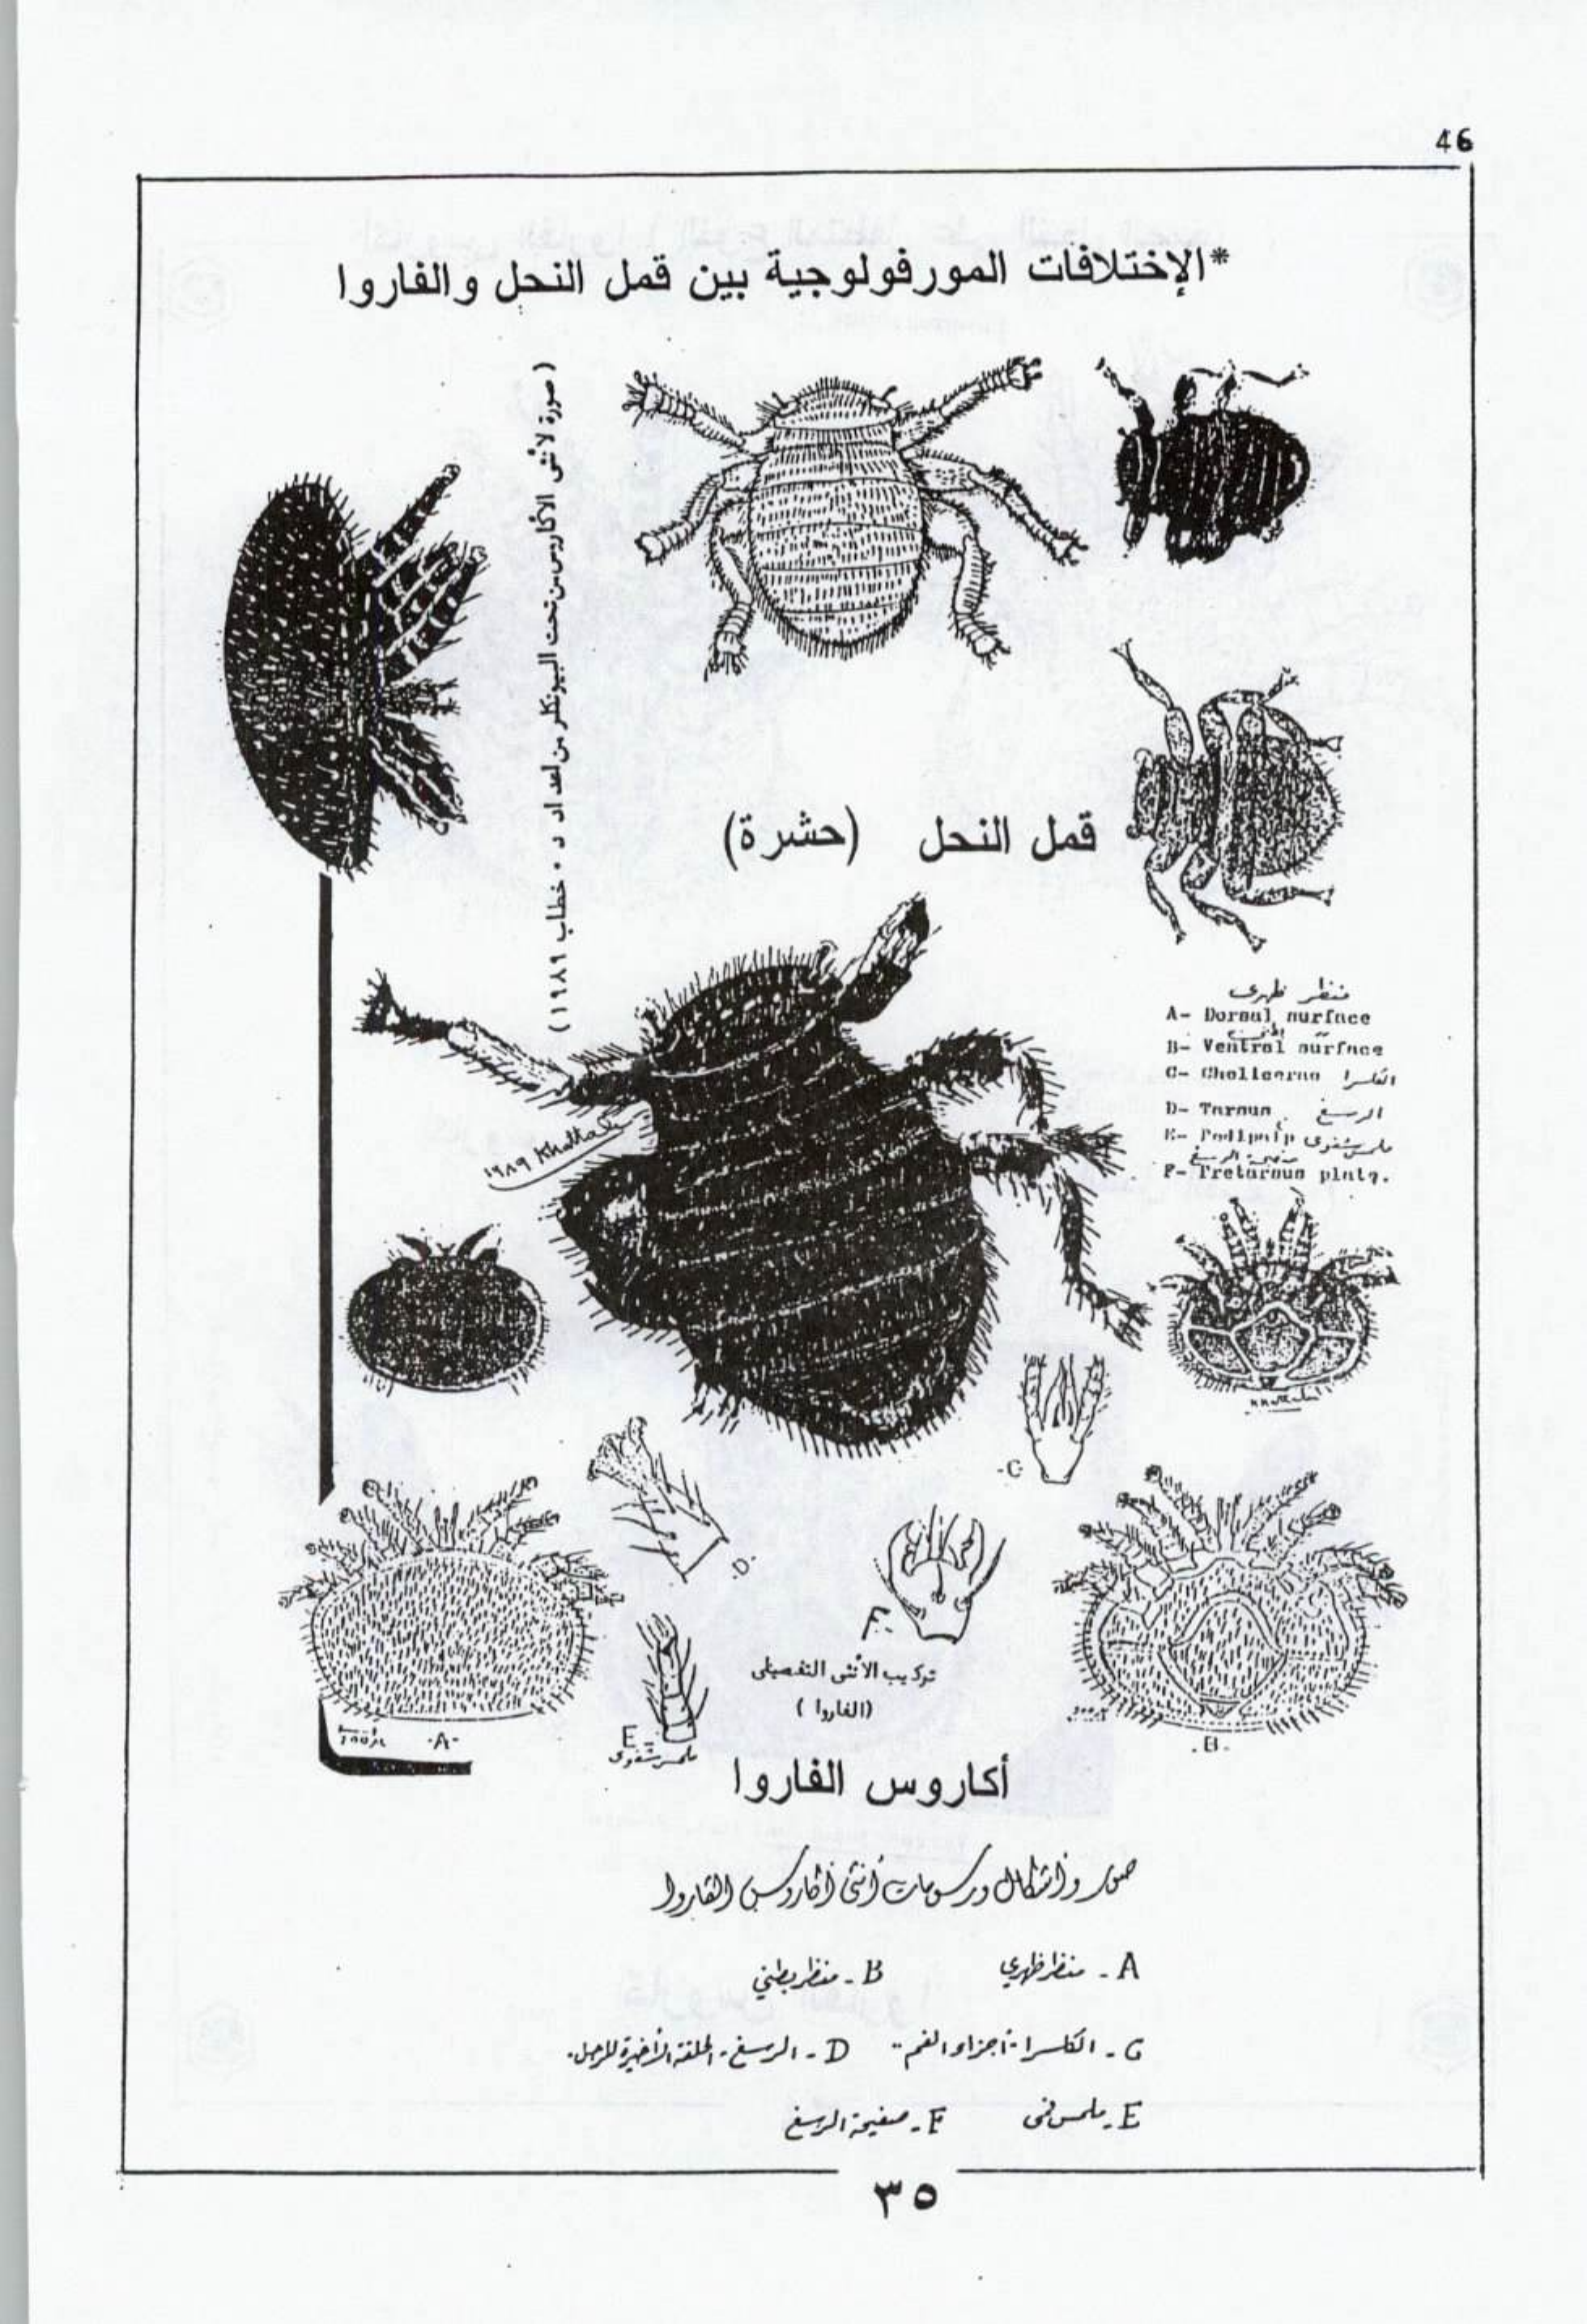 46
*الإختلافات المورفولوجية بين قمل النحل والفاروا
( صورة لأنثى الأكاروس من تحت البيونكلر من اعداد د . خطاب ١٩٨٩ )
قمل النحل (حشرة)
منظر ظهرى
A- Dorsal surface
B- Ventral surface
C- Chelicerae الكلسرا
D- Tarsus الرسغ
E- Pedipalp ملمس شفوى
صفيحة الرسغ
F- Pretarsus plate.
١٩٨٩ Khattab
-C-
-D-
F-
تركيب الأنثى التفصيلى
(الفاروا )
E-
ملمس شفوى
-A-
-B-
أكاروس الفاروا
صور وأشكال ورسومات أنثى أكاروس الفاروا
A - منظر ظهري B - منظر بطني
C - الكلسرا - أجزاء الفم - D - الرسغ - الحلقة الأخيرة للرجل.
E - ملمس فمى F - صفيحة الرسغ
٣٥